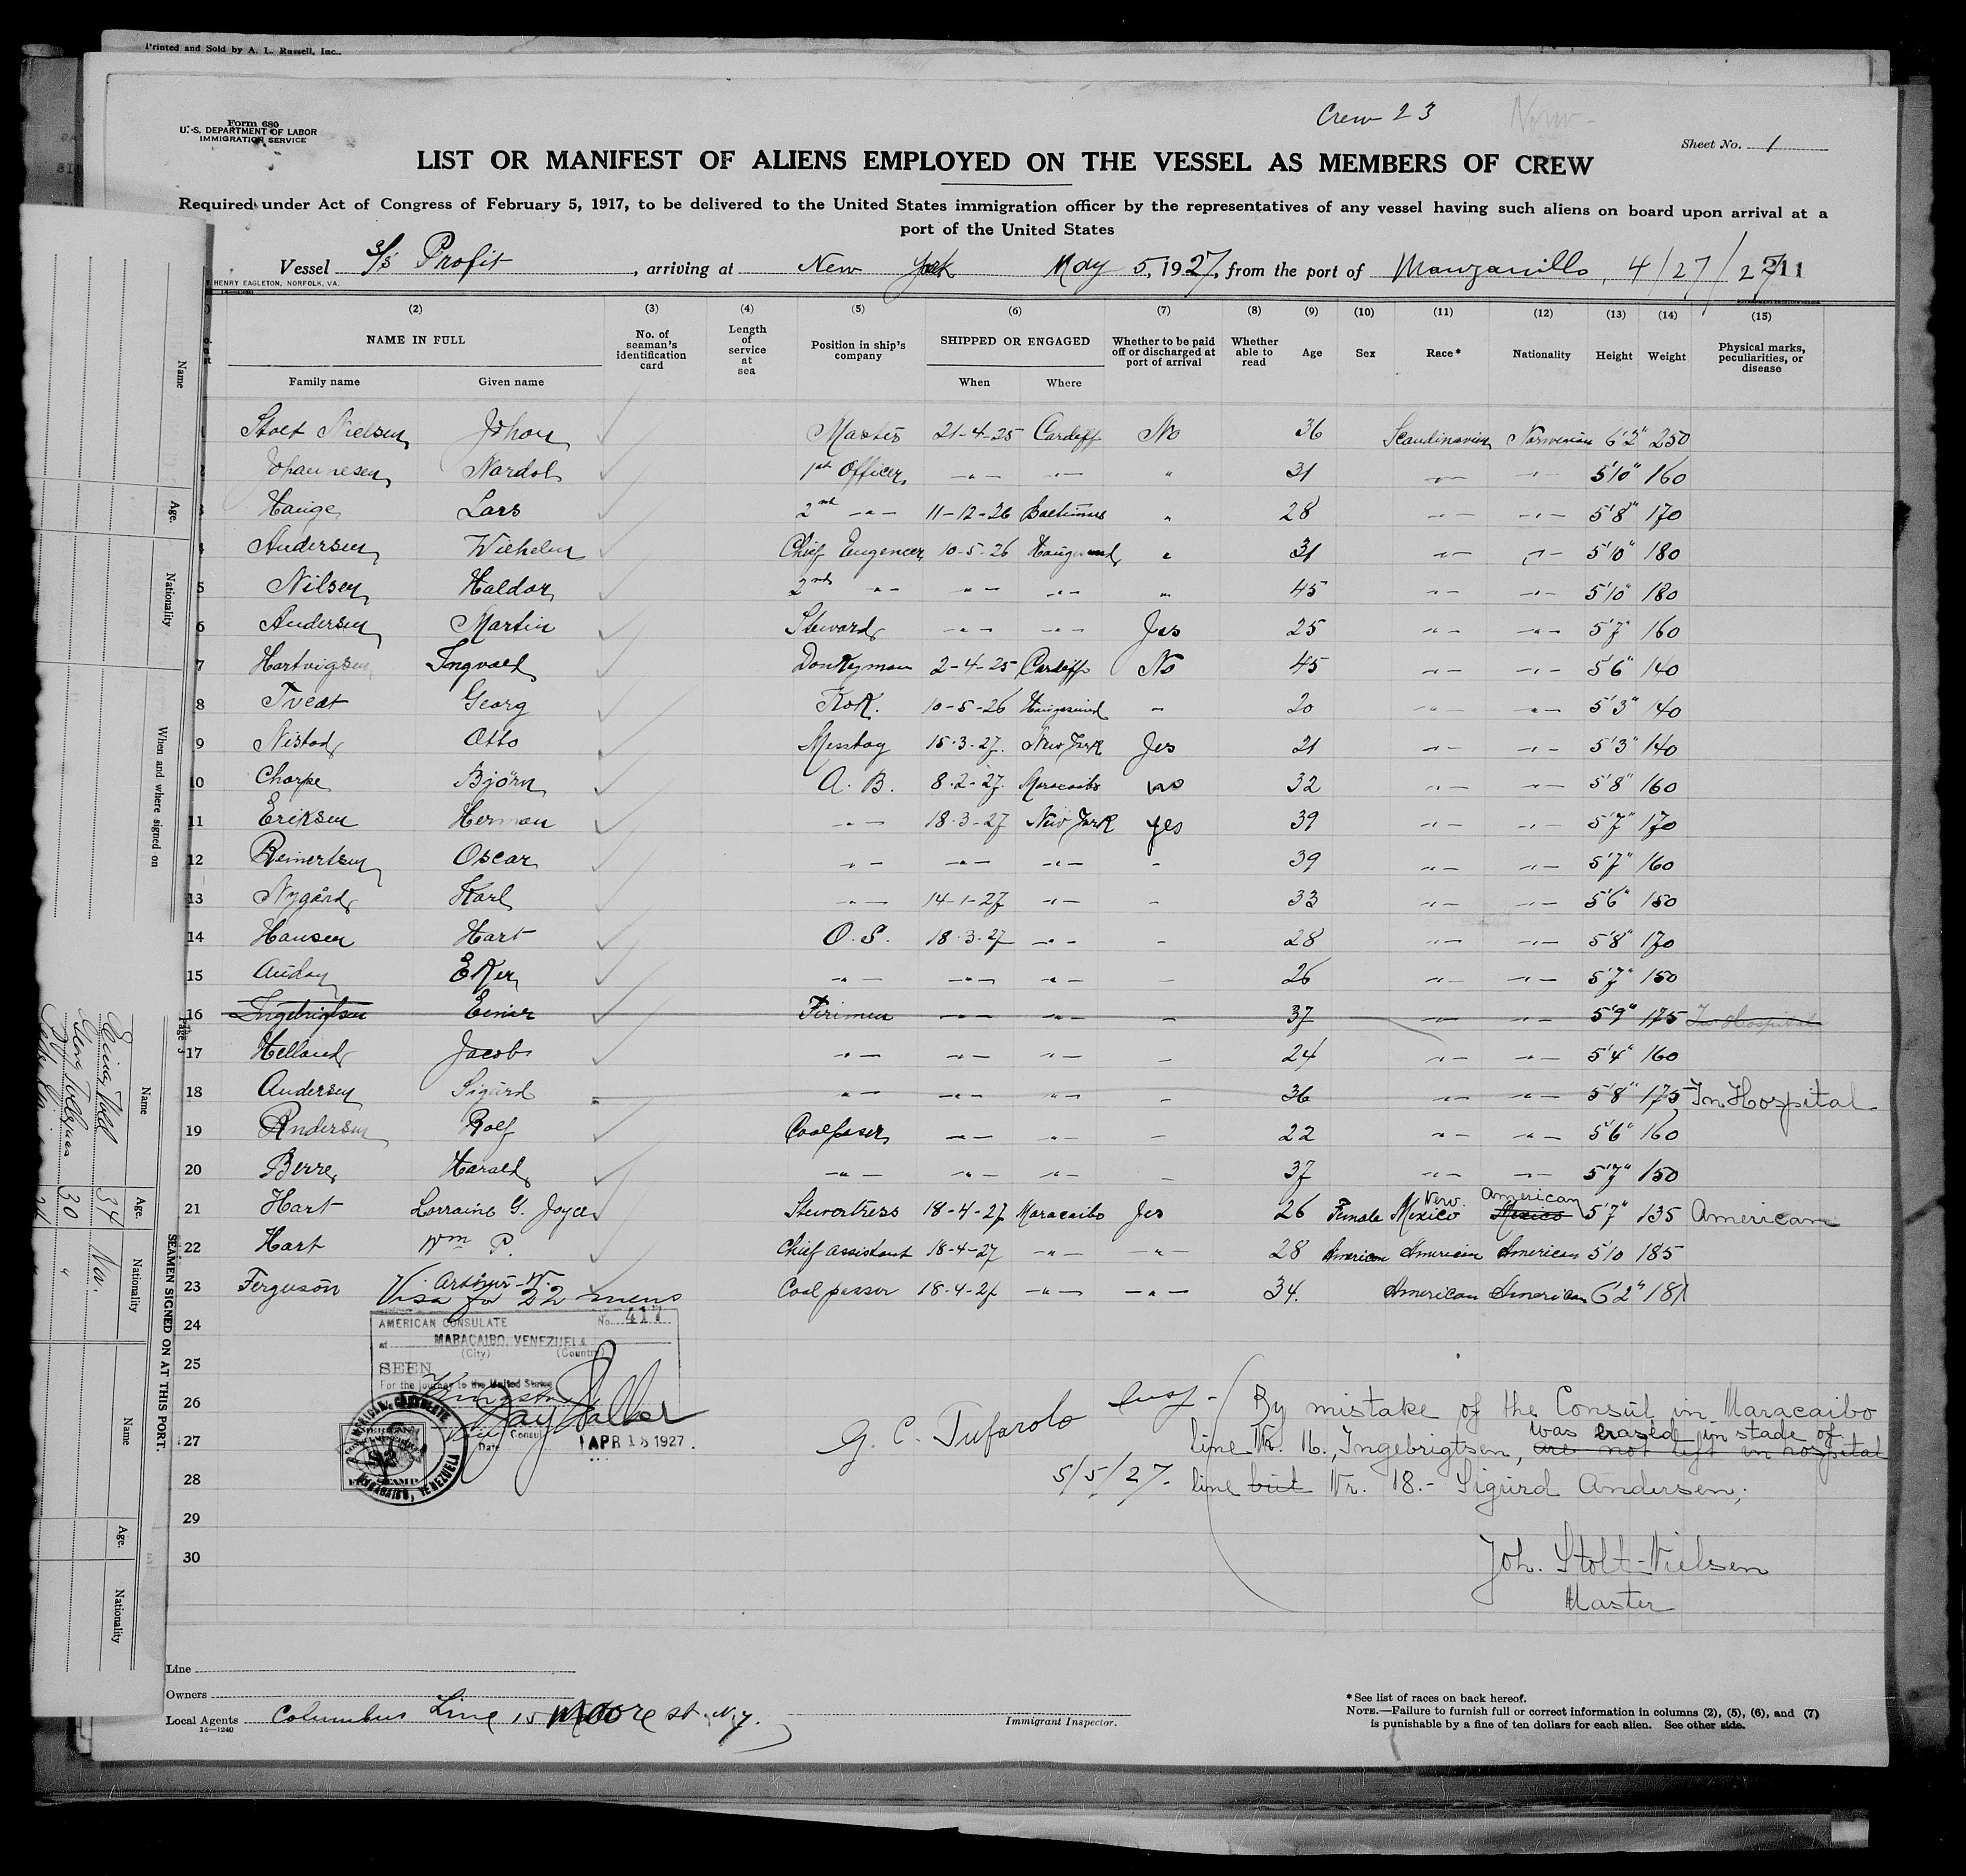 Printed and Sold by A. L. Russell, Inc.
Crew 23
Form 680
U. S. DEPARTMENT OF LABOR
IMMIGRATION SERVICE
Sheet No. 1
LIST OR MANIFEST OF ALIENS EMPLOYED ON THE VESSEL AS MEMBERS OF CREW
Required under Act of Congress of February 5, 1917, to be delivered to the United States immigration officer by the representatives of any vessel having such aliens on board upon arrival at a
port of the United States
Vessel S/S Profit, arriving at New York May 5, 1927, from the port of Manzanillo, 4/27/27
211
HENRY EAGLETON, NORFOLK, VA.
(2) (3) (4) (5) (6) (7) (8) (9) (10) (11) (12) (13) (14) (15)
NAME IN FULL
Family name Given name
No. of seaman's identification card
Length of service at sea
Position in ship's company
SHIPPED OR ENGAGED
When Where
Whether to be paid off or discharged at port of arrival
Whether able to read
Age
Sex
Race*
Nationality
Height
Weight
Physical marks, peculiarities, or disease
1 Stolt Nielsen Johan Master 21-4-25 Cardiff No 36 Scandinavian Norwegian 6'2" 250
2 Johannesen 1st Officer -"- -"- " 31 -"- -"- 5'10" 160
3 Hauge Lars 2nd -"- 11-12-26 Baltimore " 28 -"- -"- 5'8" 170
4 Andersen Wilhelm Chief Engeneer 10-5-26 Haugesund " 31 -"- -"- 5'10" 180
5 Nilsen Haldor 2nd -"- -"- -"- " 45 -"- -"- 5'10" 180
6 Andersen Martin Steward -"- -"- Yes 25 -"- -"- 5'7" 160
7 Hartvigsen Ingvald Donkeyman 2-4-25 Cardiff No 45 -"- -"- 5'6" 140
8 Tvedt Georg Kok. 10-5-26 Haugesund - 20 -"- -"- 5'3" 140
9 Nistad Otto Messboy 15-3-27. New York Yes 21 -"- -"- 5'3" 140
10 Björn A. B. 8-2-27. Maracaibo no 32 -"- -"- 5'8" 160
11 Eriksen Herman -"- 18-3-27 New York yes 39 -"- -"- 5'7" 170
12 Reinertsen Oscar -"- -"- -"- - 39 -"- -"- 5'7" 160
13 Nygård Karl -"- 14-1-27 -"- - 33 -"- -"- 5'6" 150
14 Hansen Hart O. S. 18-3-27 -"- - 28 -"- -"- 5'8" 170
15 Auday Eker -"- -"- -"- - 26 -"- -"- 5'7" 150
16 Ingebrigtsen Einar Firimen -"- -"- - 37 -"- -"- 5'9" 175 In Hospital
17 Helland Jacob -"- -"- -"- - 24 -"- -"- 5'4" 160
18 Andersen Sigurd -"- -"- -"- - 36 -"- -"- 5'8" 175 In Hospital
19 Andersen Rolf Coalpaser -"- -"- - 22 -"- -"- 5'6" 160
20 Berre Harald -"- -"- -"- - 37 -"- -"- 5'7" 150
21 Hart Lorraine G. Joyce Stewardess 18-4-27 Maracaibo Yes 26 Female Mexico New. Mexico American 5'7" 135 American
22 Hart Wm P. Chief assistant 18-4-27 -"- -"- 28 American American American 5'10 185
23 Ferguson Arthur W. Coal passer 18-4-27 -"- -"- 34. American American 6'2" 181
Visa for 22 mens
24
25
26
27
28
29
30
AMERICAN CONSULATE No. 417
at MARACAIBO, VENEZUELA
(City) (Country)
SEEN
For the journey to the United States
Vice Consul
Date APR 18 1927.
AMERICAN CONSULATE
MARACAIBO, VENEZUELA
STAMP
G. C. Tufarolo Insp.
5/5/27.
By mistake of the Consul in Maracaibo
line Nr. 16., Ingebrigtsen, are not left in hospital was erased in stade of
line but Nr. 18.- Sigurd Andersen.
Joh. Stolt-Nielsen
Master
Line
Owners
Local Agents Columbus Line 15 Moore st. N.Y.
14—1240
Immigrant Inspector.
*See list of races on back hereof.
NOTE.—Failure to furnish full or correct information in columns (2), (5), (6), and (7)
is punishable by a fine of ten dollars for each alien. See other side.
Name
Age.
Nationality
When and where signed on
Page 3
SEAMEN SIGNED ON AT THIS PORT.
Name Age. Nationality
34 Nor.
30 "
Name Age. Nationality